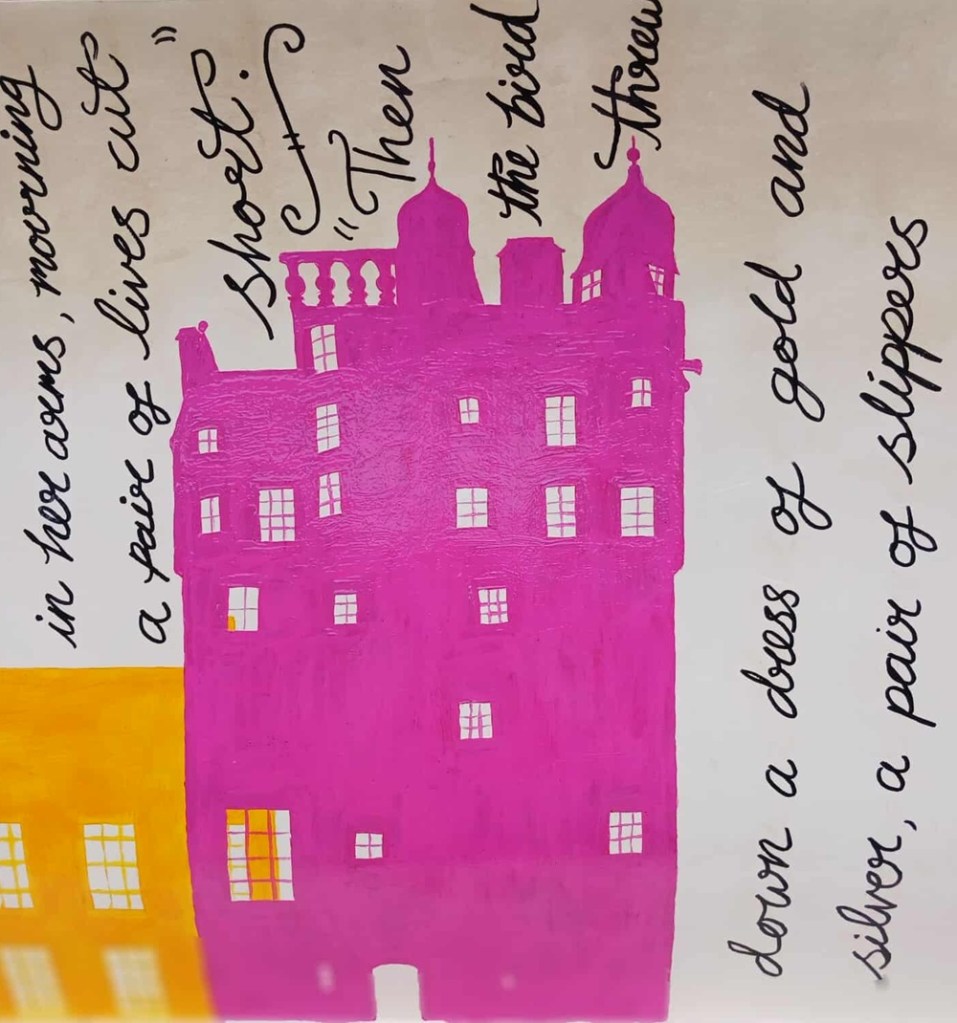 in her arms, mourning
a pair of lives cut
short."
"Then
the bird
threw
down a dress of gold and
silver, a pair of slippers